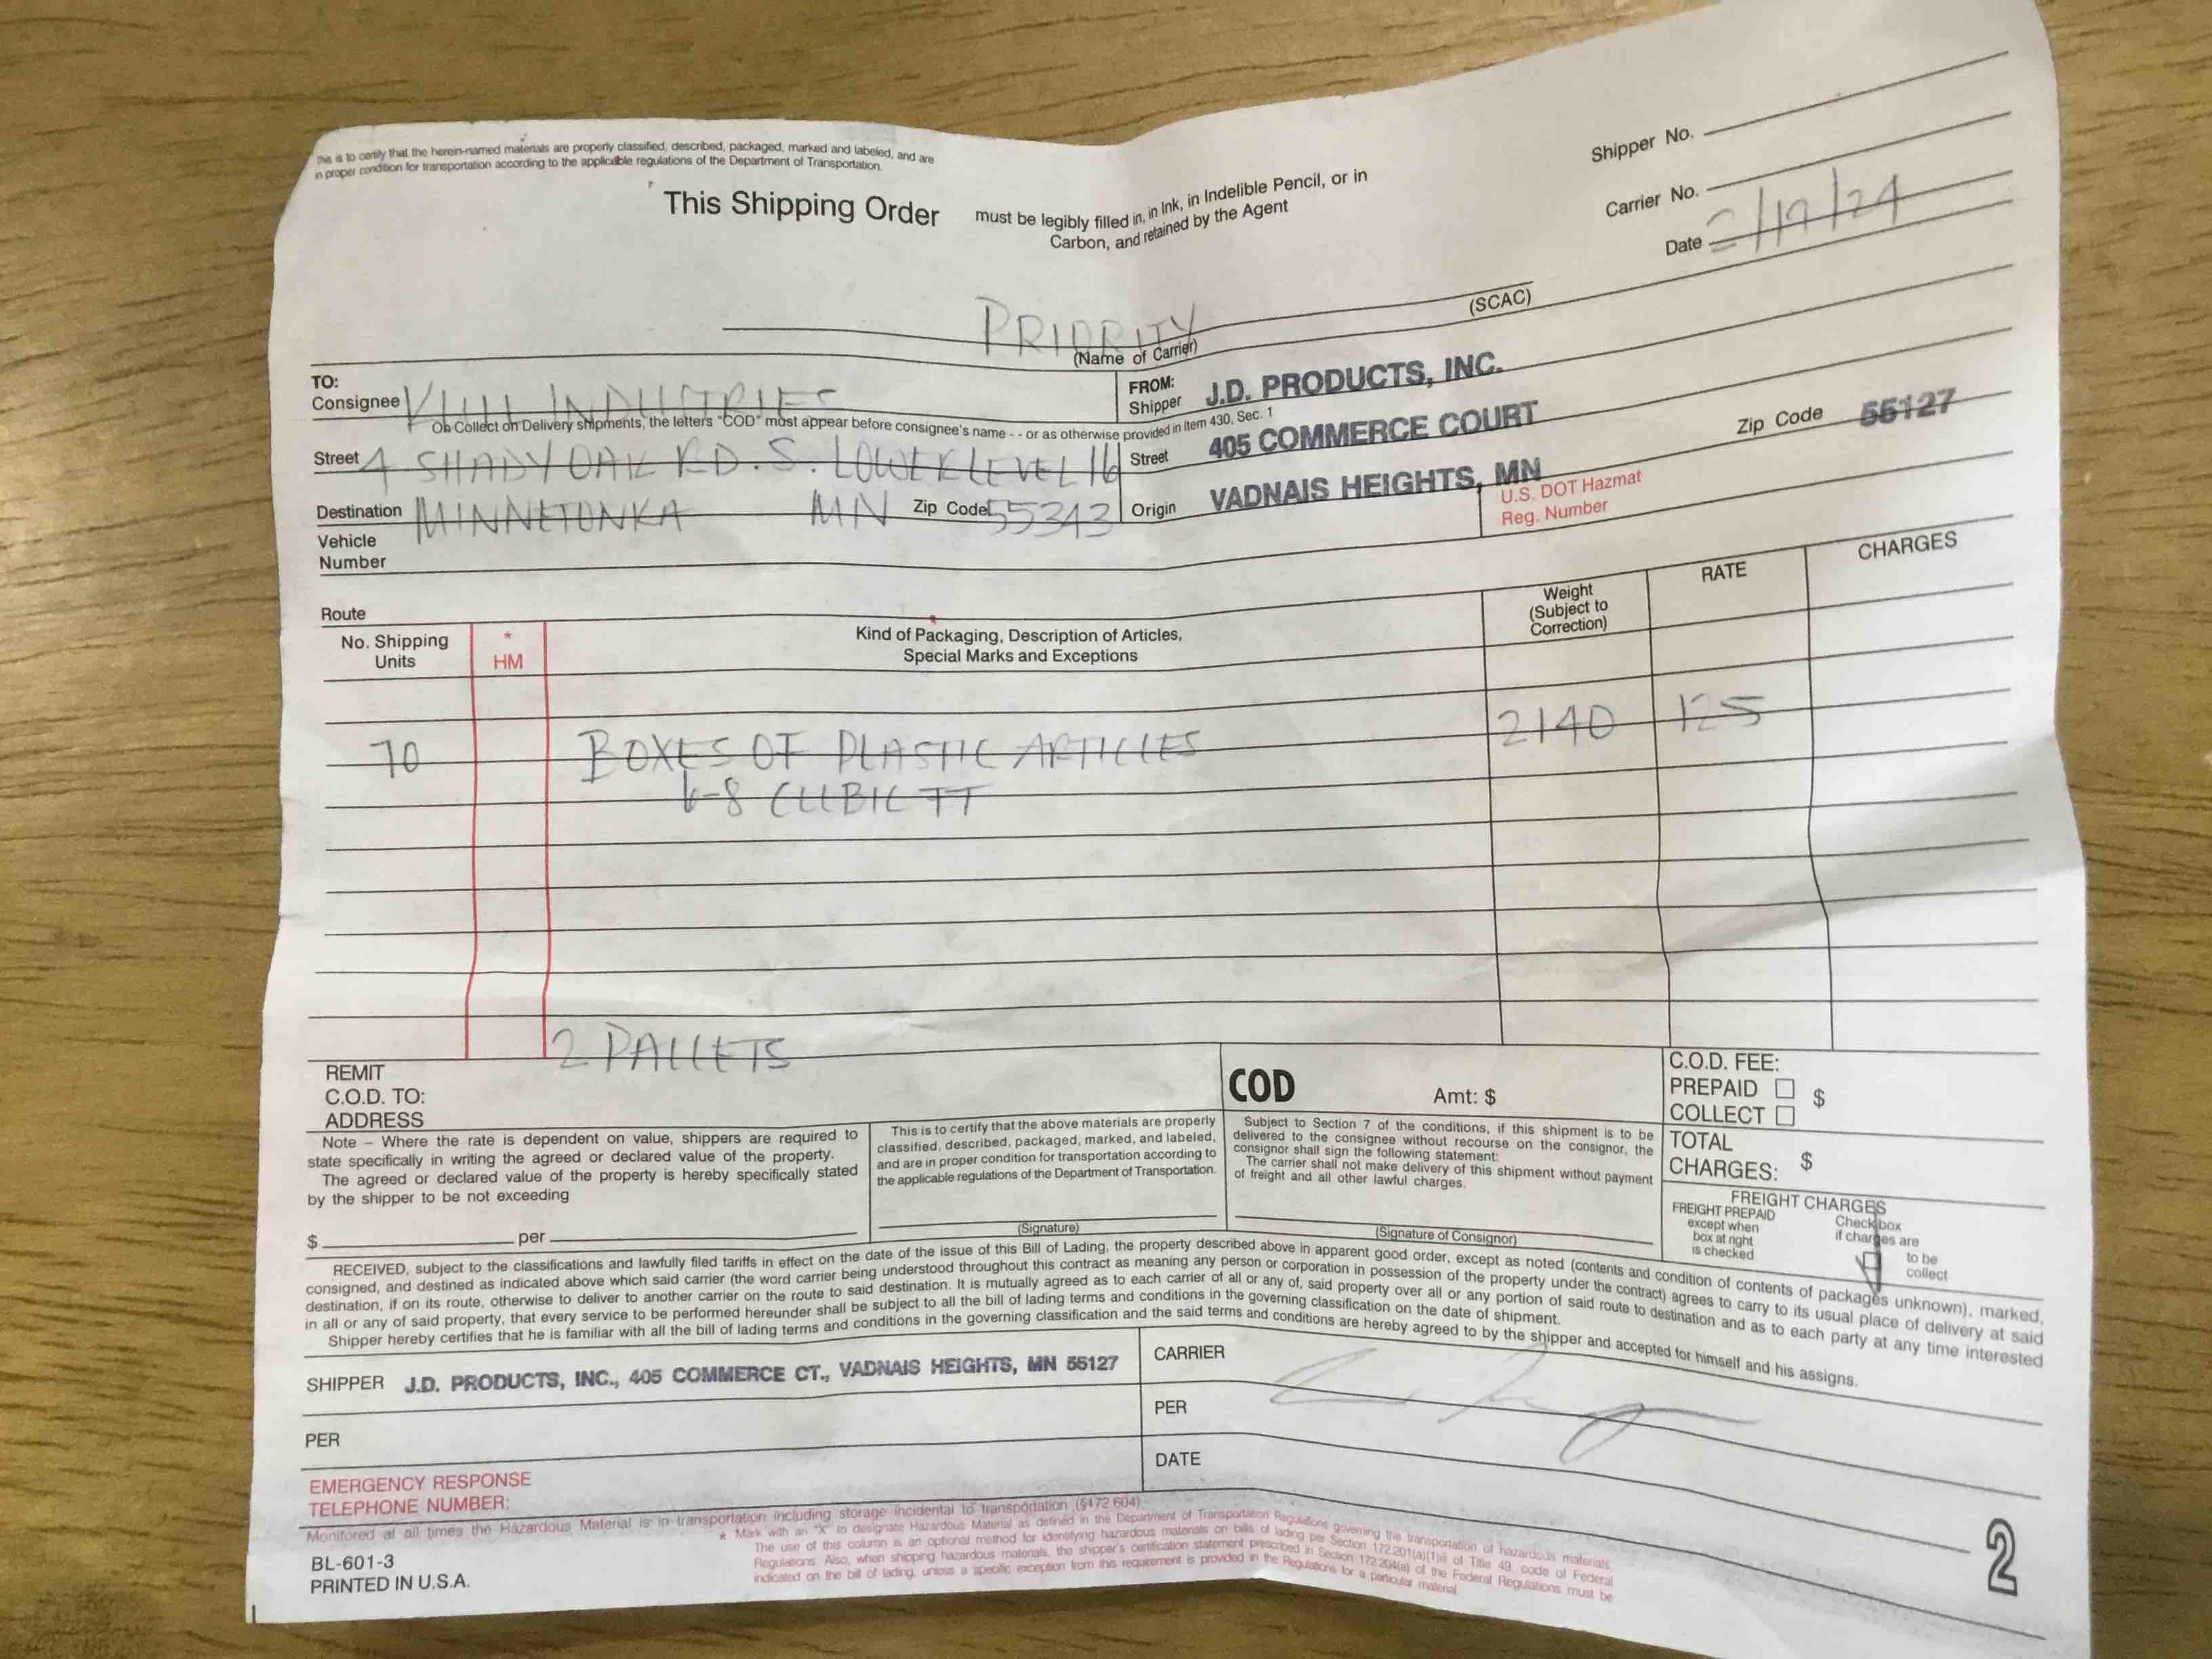 this is to certify that the herein-named materials are properly classified, described, packaged, marked and labeled, and are
in proper condition for transportation according to the applicable regulations of the Department of Transportation.
Shipper No.
This Shipping Order must be legibly filled in, in Ink, in Indelible Pencil, or in
Carbon, and retained by the Agent
Carrier No.
Date /19/24
PRIORITY
(Name of Carrier) (SCAC)
TO:
Consignee INDUSTRIES
FROM:
Shipper J.D. PRODUCTS, INC.
On Collect on Delivery shipments, the letters "COD" must appear before consignee's name - - or as otherwise provided in Item 430, Sec. 1
Street 4 SHADY OAK RD. S. LOWER LEVEL 16
Street 405 COMMERCE COURT
Zip Code 55127
Destination MINNETONKA MN Zip Code 55343
Origin VADNAIS HEIGHTS, MN
U.S. DOT Hazmat
Reg. Number
Vehicle
Number
Route
No. Shipping
Units
*
HM
Kind of Packaging, Description of Articles,
Special Marks and Exceptions
Weight
(Subject to
Correction)
RATE
CHARGES
70 BOXES OF PLASTIC ARTICLES 2140 125
6-8 CUBIC FT
2 PALLETS
REMIT
C.O.D. TO:
ADDRESS
COD Amt: $
C.O.D. FEE:
PREPAID $
COLLECT
Note – Where the rate is dependent on value, shippers are required to
state specifically in writing the agreed or declared value of the property.
The agreed or declared value of the property is hereby specifically stated
by the shipper to be not exceeding
$ per
This is to certify that the above materials are properly
classified, described, packaged, marked, and labeled,
and are in proper condition for transportation according to
the applicable regulations of the Department of Transportation.
(Signature)
Subject to Section 7 of the conditions, if this shipment is to be
delivered to the consignee without recourse on the consignor, the
consignor shall sign the following statement:
The carrier shall not make delivery of this shipment without payment
of freight and all other lawful charges.
(Signature of Consignor)
TOTAL
CHARGES: $
FREIGHT CHARGES
FREIGHT PREPAID
except when
box at right
is checked
Check box
if charges are
to be
collect
RECEIVED, subject to the classifications and lawfully filed tariffs in effect on the date of the issue of this Bill of Lading, the property described above in apparent good order, except as noted (contents and condition of contents of packages unknown), marked,
consigned, and destined as indicated above which said carrier (the word carrier being understood throughout this contract as meaning any person or corporation in possession of the property under the contract) agrees to carry to its usual place of delivery at said
destination, if on its route, otherwise to deliver to another carrier on the route to said destination. It is mutually agreed as to each carrier of all or any of, said property over all or any portion of said route to destination and as to each party at any time interested
in all or any of said property, that every service to be performed hereunder shall be subject to all the bill of lading terms and conditions in the governing classification on the date of shipment.
Shipper hereby certifies that he is familiar with all the bill of lading terms and conditions in the governing classification and the said terms and conditions are hereby agreed to by the shipper and accepted for himself and his assigns.
SHIPPER J.D. PRODUCTS, INC., 405 COMMERCE CT., VADNAIS HEIGHTS, MN 55127
CARRIER
PER
PER
DATE
EMERGENCY RESPONSE
TELEPHONE NUMBER:
Monitored at all times the Hazardous Material is in transportation including storage incidental to transportation (§172.604).
* Mark with an "X" to designate Hazardous Material as defined in the Department of Transportation Regulations governing the transportation of hazardous materials.
The use of this column is an optional method for identifying hazardous materials on bills of lading per Section 172.201(a)(1)(iii) of Title 49, code of Federal
Regulations. Also, when shipping hazardous materials, the shipper's certification statement prescribed in Section 172.204(a) of the Federal Regulations must be
indicated on the bill of lading, unless a specific exception from this requirement is provided in the Regulations for a particular material.
BL-601-3
PRINTED IN U.S.A.
2